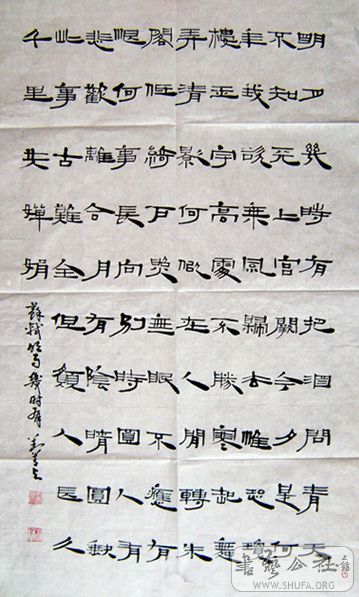 明月幾時有把酒問青天
不知天上宮闕今夕是何
年我欲乘風歸去惟恐瓊
樓玉宇高處不勝寒起舞
弄清影何似在人間轉朱
閣低綺戶照無眠不應有
恨何事長向別時圓人有
悲歡離合月有陰晴圓缺
此事古難全但願人長久
千里共嬋娟
蘇軾幾時有
書藝公社
WWW.SHUFA.ORG